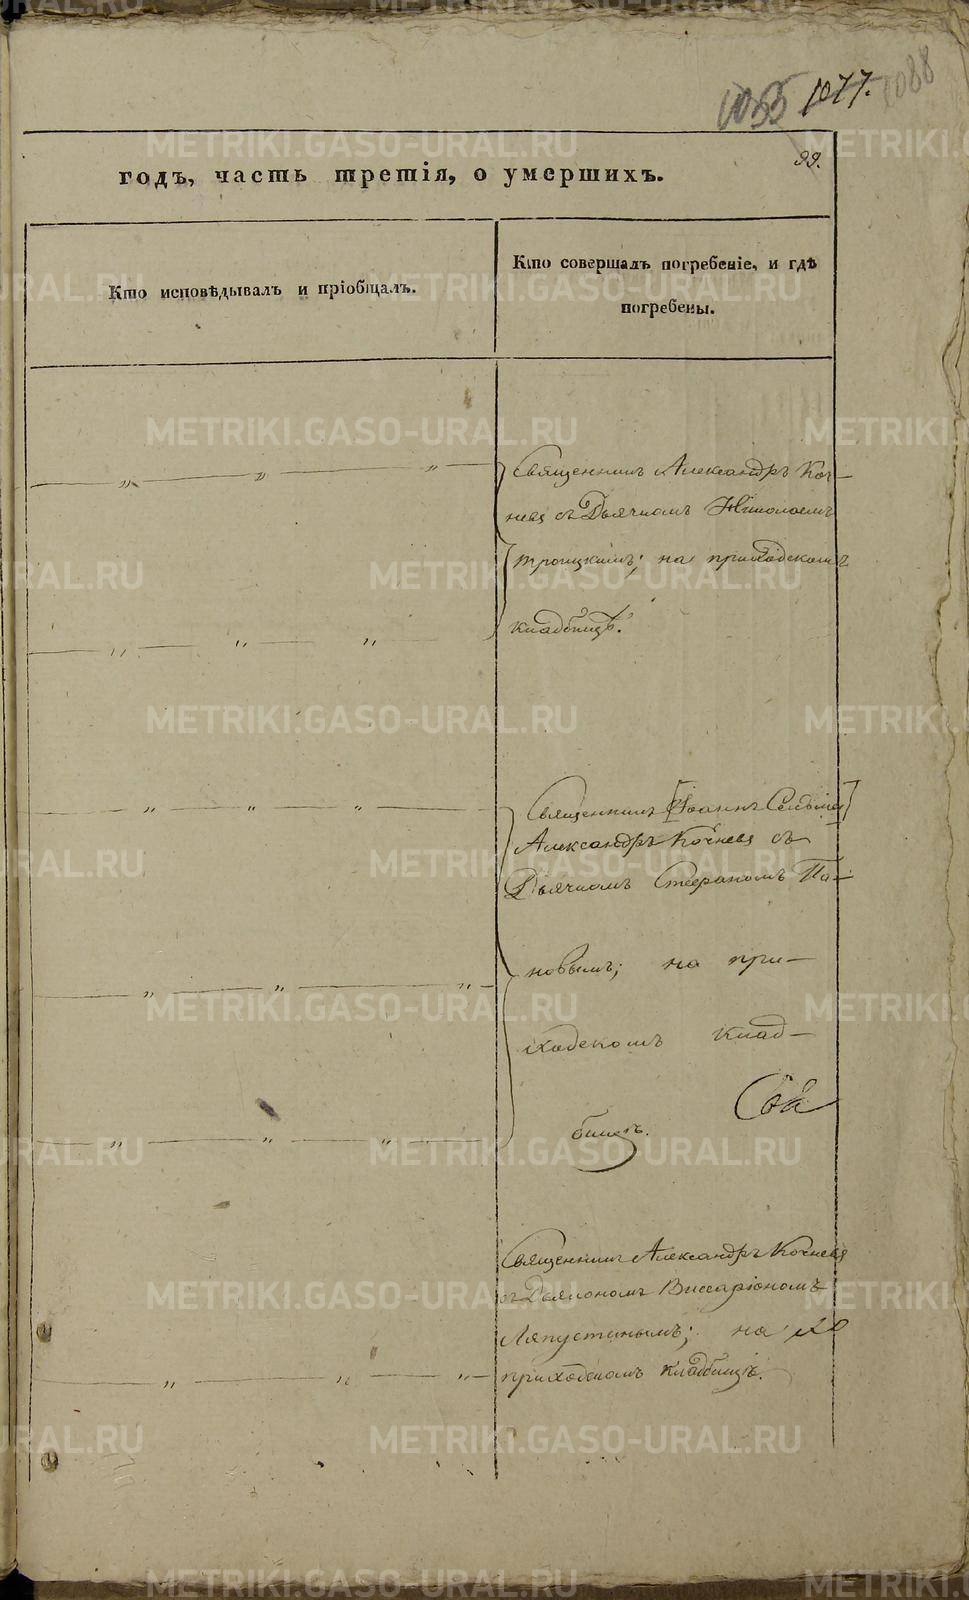 1055 1077. 1088
99.
годъ, часть третія, о умершихъ.
Кто исповѣдывалъ и пріобщалъ.
Кто совершалъ погребеніе, и гдѣ
погребены.
Священникъ Александръ Коч-
невъ съ Дьячкомъ Николаемъ
Троицкимъ; на приходскомъ
кладбищѣ.
Священникъ [Іоаннъ]
Александръ Кочневъ съ
Дьячкомъ Стефаномъ По-
новымъ; на при-
ходскомъ клад-
бищѣ.
Священникъ Александръ Кочневъ
съ Дьякономъ Виссаріономъ
Ляпустинымъ; на
приходскомъ кладбищѣ.
METRIKI.GASO-URAL.RU